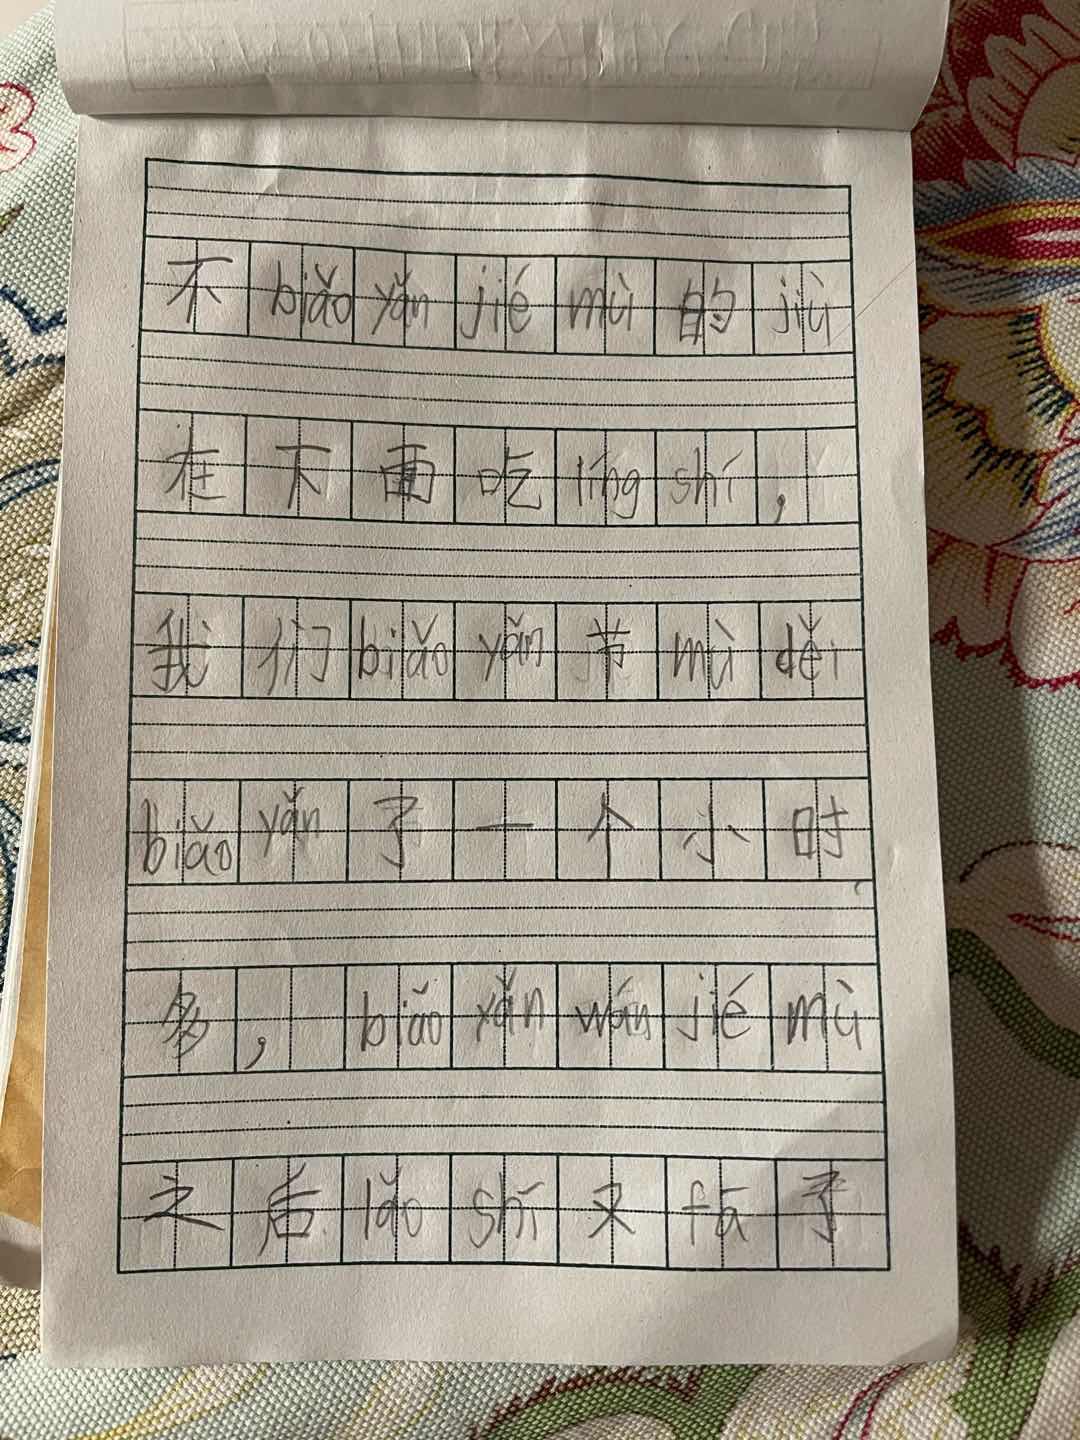 不 biǎo yǎn jié mù 的 jiù
在下面吃 líng shí，
我们 biǎo yǎn 节 mù děi
biǎo yǎn 了一个小时
多， biǎo yǎn wán jié mù
之后 lǎo shī 又 fā 了